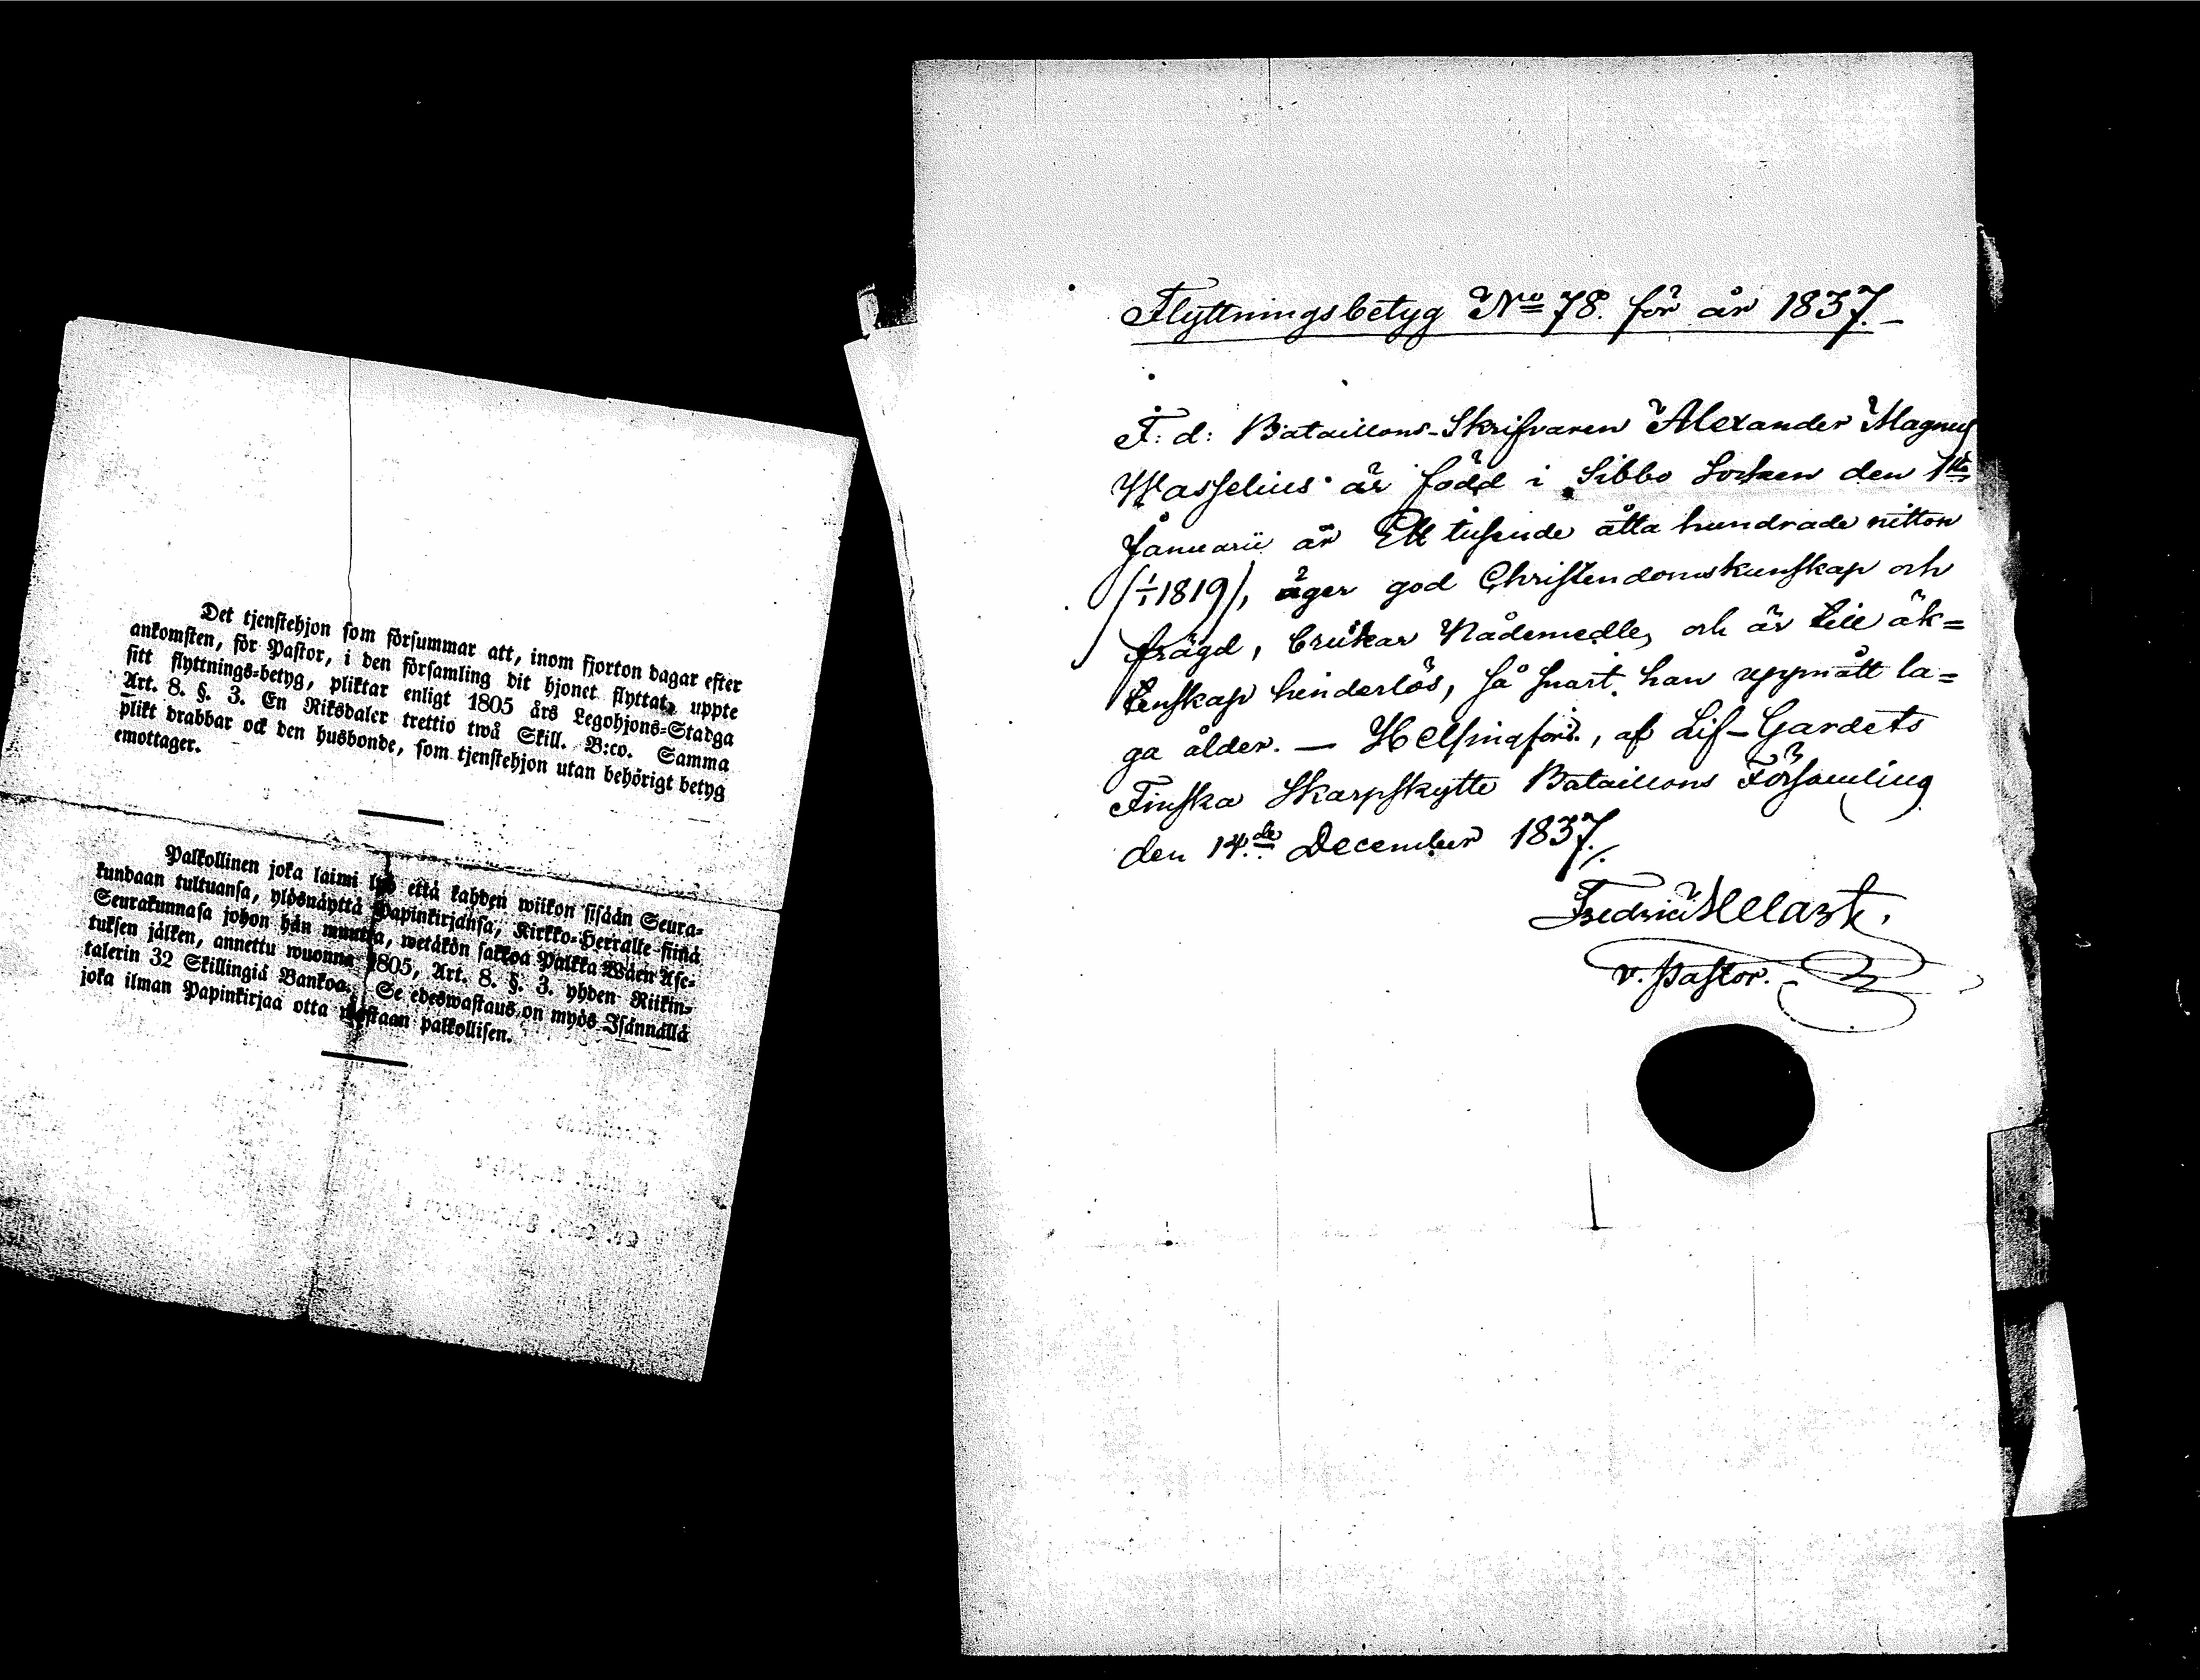 Det tjenstehjon som försummar att, inom fjorton dagar efter
ankomsten, för Pastor, i den församling dit hjonet flyttat, uppte
sitt flyttnings-betyg, pliktar enligt 1805 års Legohjons-Stadga
Art. 8. §. 3. En Riksdaler trettio twå Skill. B:co. Samma
plikt drabbar ock den husbonde, som tjenstehjon utan behörigt betyg
emottager.
Palkollinen joka laimi lyö että kahden wiikon sisään Seura-
kundaan tultuansa, ylösnäyttä Papinkirjansa, Kirkko-Herralle siinä
Seurakunnasa johon hän muutta, wetäkön sakkoa Palkka Wäen Ase-
tuksen jälken, annettu wuonna 1805, Art. 8. §. 3. yhden Riikin-
talerin 32 Skillingiä Bankoa. Se edeswastaus on myös Isännällä
joka ilman Papinkirjaa otta wastaan palkollisen.
Flyttningsbetyg No 78. för år 1837.
F: d: Bataillons-Skrifvaren Alexander Magnus
Wasselius är född i Sibbo Socken den 1sta
Januarii år Ett tusende åtta hundrade nitton
(1/1 1819), äger god Christendomskunskap och
frägd, brukar Nådemedle, och är till äk=
tenskap hinderlös, så snart han uppnått la=
ga ålder. — Helsingfors, af Lif-Gardets
Finska Skarpskytte Bataillons Församling
den 14de December 1837.
Fredric
v. Pastor.